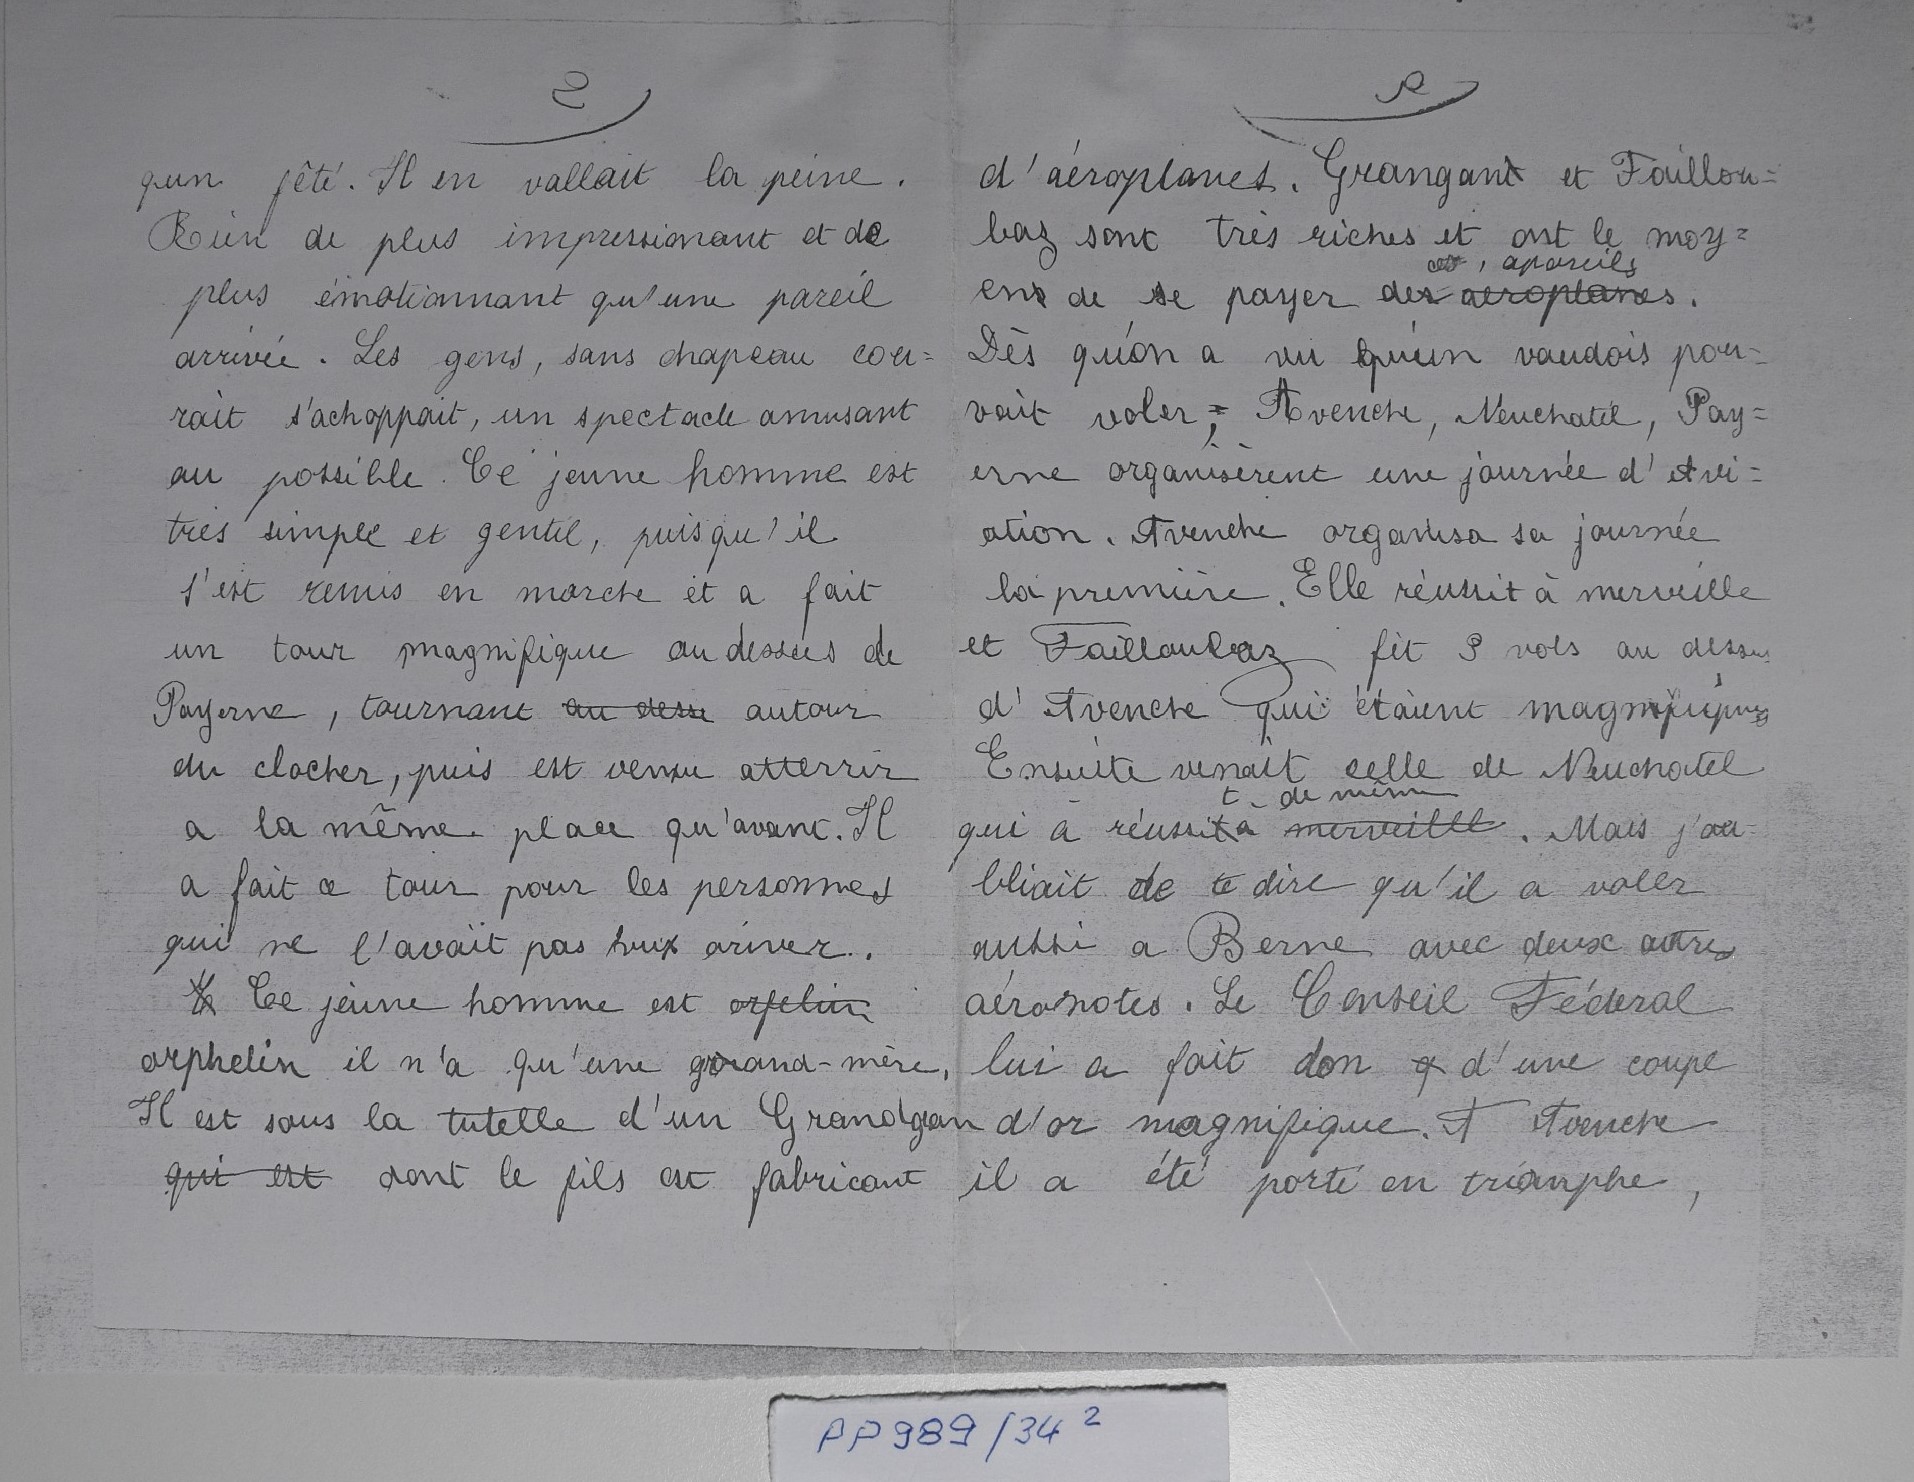 2
qun fêté. Il en vallait la peine.
Rien de plus impressionant et de
plus émotionnant qu'une pareil
arrivée. Les gens, sans chapeau cou=
rait s'achoppait, un spectacle amusant
au possible. Ce jeune homme est
très simple et gentil, puisqu'il
s'est remis en marche et a fait
un tour magnifique au dessus de
Payerne, tournant au dessu autour
du clocher, puis est venu atterrir
a la même place qu'avant. Il
a fait ce tour pour les personnes
qui ne l'avait pas vux ariver.
Ce jeune homme est orfelin
orphelin il n'a qu'une grand-mère,
Il est sous la tutelle d'un Grandgean
qui est dont le fils est fabricant
d'aéroplanes. Grangant et Faillou=
baz sont très riches et ont le moy=
apareils
ens de se payer des aeroplanes.
Dès qu'on a vu qu'un vaudois pou=
vait voler; Avenche, Neuchatel, Pay=
erne organisèrent une journée d'Avi=
ation. Avenche organisa sa journée
la première. Elle réussit à merveille
et Failloubaz fit 3 vols au dessus
d'Avenche qui étaient magnifiques
Ensuite venait celle de Neuchatel
t de même
qui à réussit à merveille. Mais j'ou-
bliait de te dire qu'il a voler
aussi a Berne avec deux autres
aéronotes. Le Conseil Féderal
lui a fait don d'une coupe
d'or magnifique. A Avenche
il a été porté en triomphe,
PP989/34²